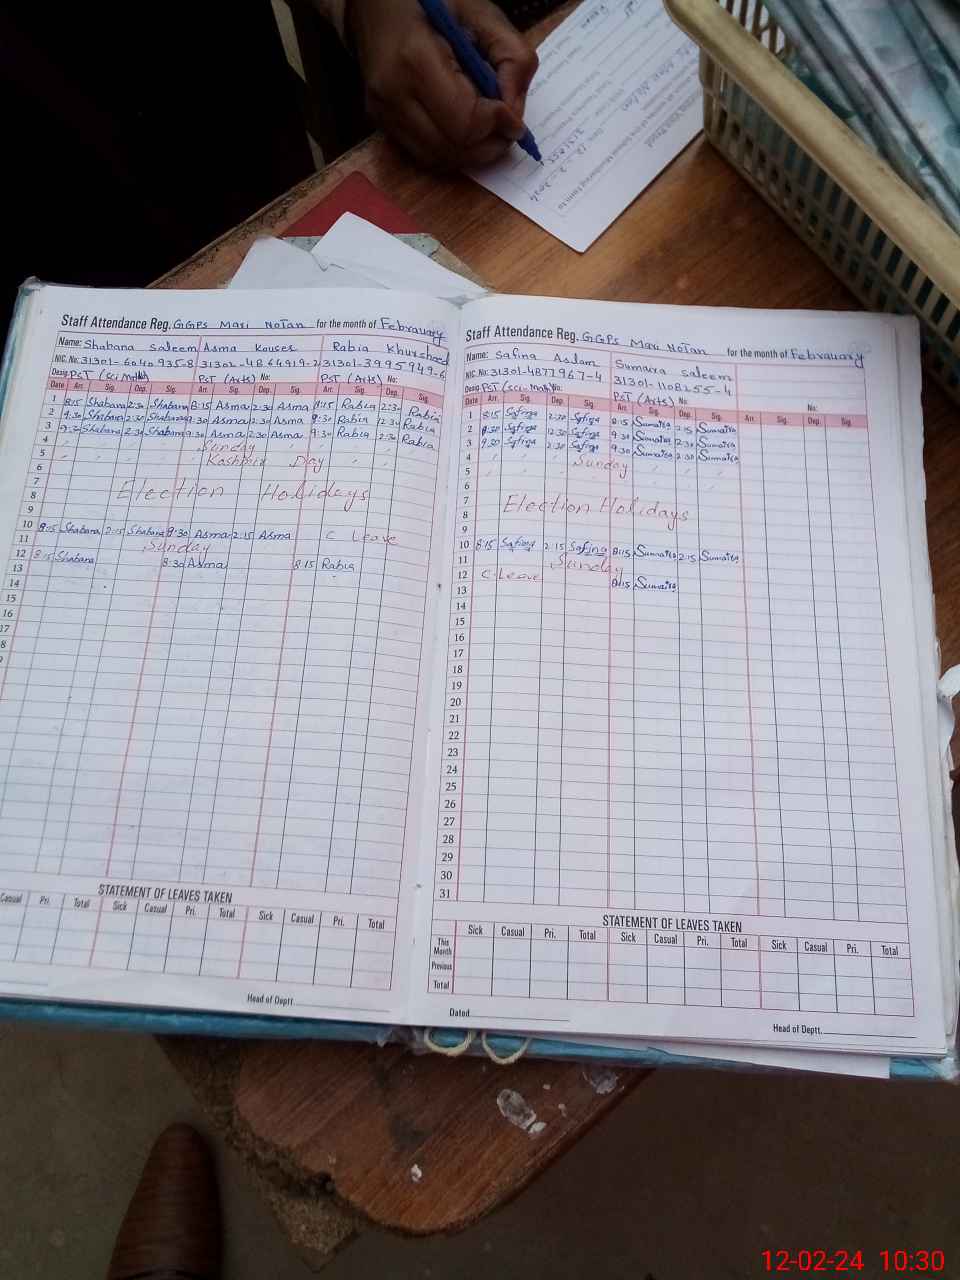 Staff Attendance Reg. GGPS Mari NoTan for the month of Febrauary
Name: Shabana Saleem Asma Kouser Rabia Khursheed
NIC. No: 31301-6040935-8 31301-4866919-2 31301-3995949-6
Desig: PST (Sci Math) PST (Arts) No: PST (Arts) No:
Date Arr. Sig. Dep. Sig. Arr. Sig. Dep. Sig. Arr. Sig. Dep. Sig.
1 8:15 Shabana 2:30 Shabana 8:15 Asma 2:30 Asma 8:15 Rabia 2:30 Rabia
2 9:30 Shabana 12:30 Shabana 9:30 Asma 12:30 Asma 9:30 Rabia 12:30 Rabia
3 9:30 Shabana 2:30 Shabana 9:30 Asma 2:30 Asma 9:30 Rabia 2:30 Rabia
4 Sunday
5 Kashmir Day
6
7 Election Holidays
8
9
10 8:15 Shabana 2:15 Shabana 8:30 Asma 2:15 Asma C Leave
11 Sunday
12 8:15 Shabana 8:30 Asma 8:15 Rabia
13
14
15
16
17
8
9
STATEMENT OF LEAVES TAKEN
Casual Pri. Total Sick Casual Pri. Total Sick Casual Pri. Total
Head of Deptt.
Staff Attendance Reg. GGPS Mari NoTan for the month of Febrauary
Name: Safina Aslam Sumaira Saleem
NIC No: 31301-4877967-4 31301-1108255-4
Desig: PST (Sci-Math) No: PST (Arts) No: No:
Date Arr. Sig. Dep. Sig. Arr. Sig. Dep. Sig. Arr. Sig. Dep. Sig
1 8:15 Safina 2:30 Safina 8:15 Sumaira 2:15 Sumaira
2 9:30 Safina 12:30 Safina 9:30 Sumaira 12:30 Sumaira
3 9:30 Safina 2:30 Safina 9:30 Sumaira 2:30 Sumaira
4 Sunday
5
6
7 Election Holidays
8
9
10 8:15 Safina 2:15 Safina 8:15 Sumaira 2:15 Sumaira
11 Sunday
12 C-Leave 8:15 Sumaira
13
14
15
16
17
18
19
20
21
22
23
24
25
26
27
28
29
30
31
STATEMENT OF LEAVES TAKEN
Sick Casual Pri. Total Sick Casual Pri. Total Sick Casual Pri. Total
This Month
Previous
Total
Dated
Head of Deptt.
12-02-24 10:30